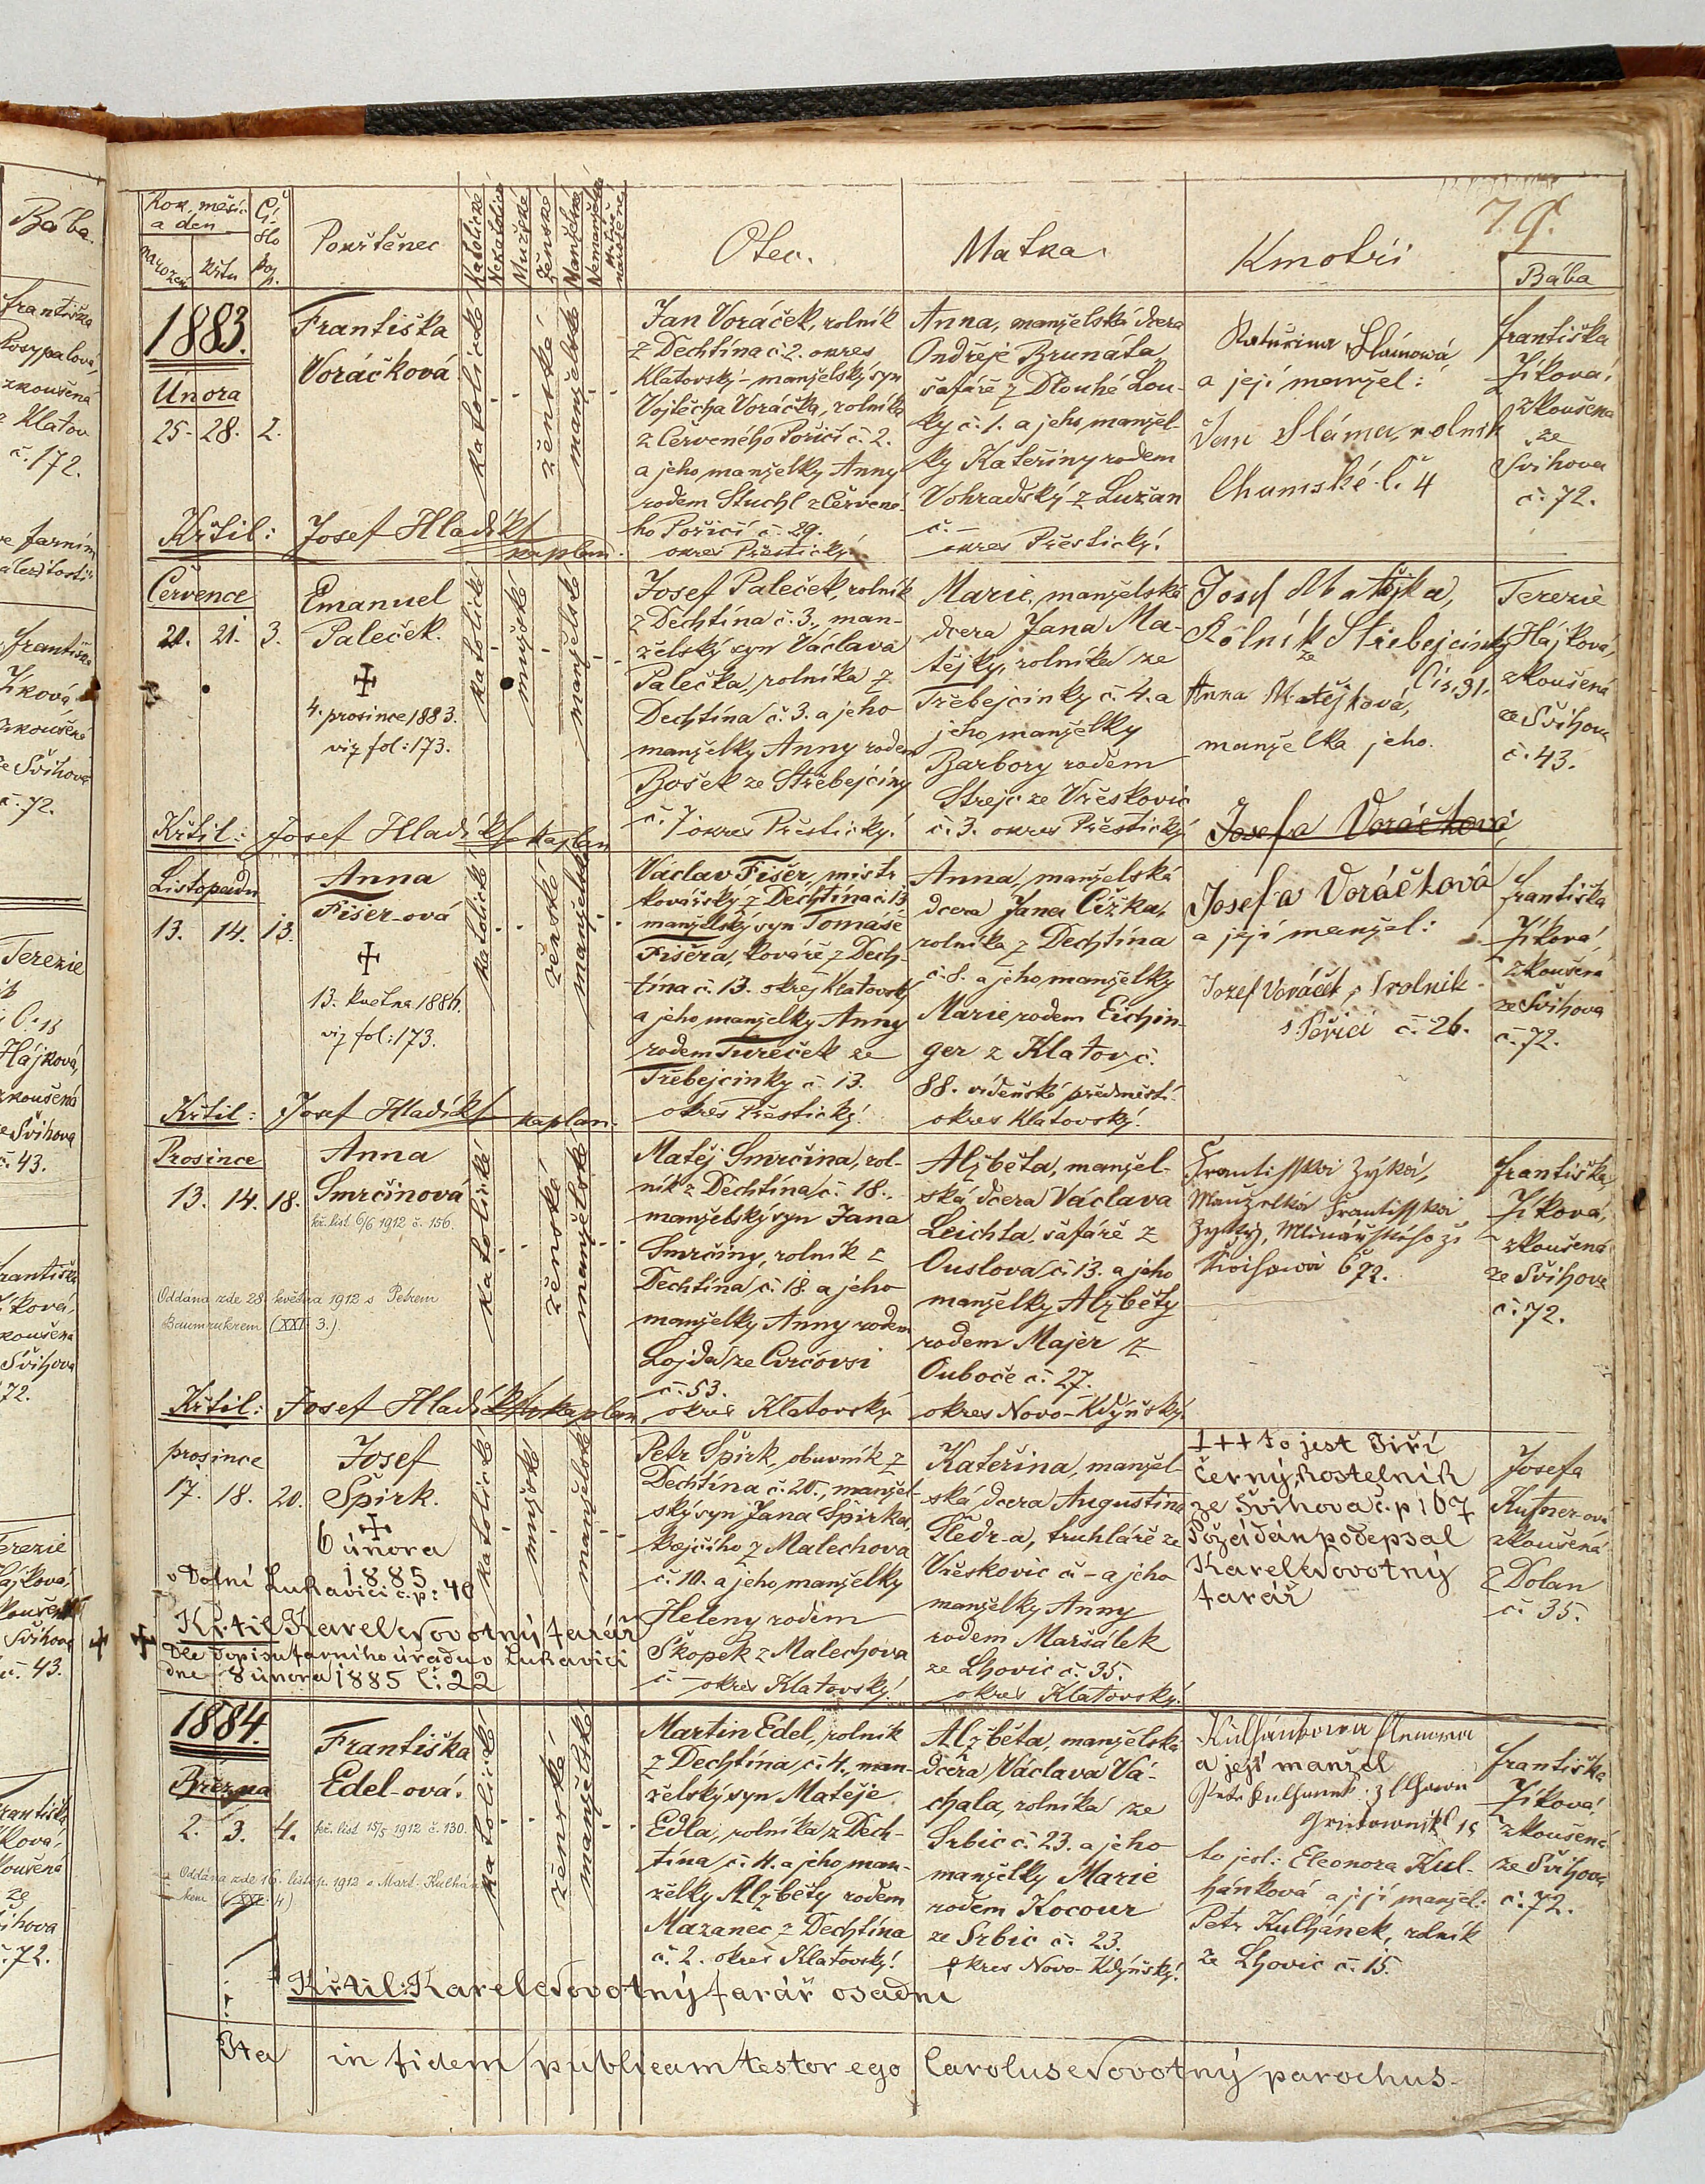 79.
Rok, měsíc
a den
narození
křtu
Čí-
slo
pop.
Pokřtěnec
Katolické
Nekatolické
Mužské
Ženské
Manželské
Nemanželské
Mrtvě
narozené
Otec.
Matka
Kmotři
Bába
1883.
Února
25. 28. 2.
Františka
Voráčková
katolické
ženské
manželské
Jan Voráček, rolník
z Dechtína č. 2. okres
Klatovský – manželský syn
Vojtěcha Voráčka, rolníka
z Červeného Poříčí č. 2.
a jeho manželky Anny
rodem Stuchl z Červené-
ho Poříčí č. 29.
okres Přeštický.
Anna, manželská dcera
Ondřeje Brunáta,
šafáře z Dlouhé Lou-
ky č. 1. a jeho manžel-
ky Kateřiny rodem
Vohradský z Lužan
č. –
okres Přeštický.
Kateřina Slámová
a její manžel:
Jan Sláma, rolník
Chumské č. 4
Františka
Jíková,
zkoušena
ze
Švihova
č. 72.
Křtil: Josef Hladík kaplan.
Července
20. 21. 3.
Emanuel
Paleček.
4. prosince 1883.
viz fol: 173.
katolické
mužské
manželské
Josef Paleček, rolník
z Dechtína č. 3., man-
želský syn Václava
Palečka, rolníka z
Dechtína č. 3. a jeho
manželky Anny rodem
Bošek ze Střebejčiny
č. 7 okres Přeštický.
Marie, manželská
dcera Jana Ma-
tějky, rolníka ze
Třebejcinky č. 4. a
jeho manželky
Barbory rodem
Strejc ze Vřeskovic
č. 3. okres Přeštický
Josef Matějka,
Rolník ze Střebejcinky
Čís. 31.
Anna Matějková,
manželka jeho.
Josefa Voráčková,
Terezie
Hájková,
zkoušená
ze Švihova
č. 43.
Křtil: Josef Hladík kaplan
Listopadu
13. 14. 13.
Anna
Fišer-ová
13. května 1886.
viz fol: 173.
katolické
ženské
manželské
Václav Fišer, mistr
kovářský z Dechtína č. 13
manželský syn Tomáše
Fišera, kováře z Dech-
tína č. 13. okres Klatovský
a jeho manželky Anny
rodem Tureček ze
Třebejcinky č. 13.
okres Přeštický.
Anna, manželská
dcera Jana Čížka,
rolníka z Dechtína
č. 8. a jeho manželky
Marie rodem Eichin-
ger z Klatov č.
88. vídeňské předměstí.
okres Klatovský.
Josefa Voráčková
a její manžel:
Jozef Voráček, rolník
s Poříčí č. 26.
Františka
Jíková,
zkoušená
ze Švihova
č. 72.
Křtil: Josef Hladík kaplan.
Prosince
13. 14. 18.
Anna
Smrčinová
kř. list 6/6 1912 č. 156.
Oddána zde 28. května 1912 s Petrem
Baumrukrem (XXI 3.)
katolické
ženské
manželské
Matěj Smrčina, rol-
ník z Dechtína č. 18.,
manželský syn Jana
Smrčiny, rolník z
Dechtína č. 18. a jeho
manželky Anny rodem
Lojda ze Crčovsi
č. 53.
okres Klatovský
Alžběta, manžel-
ská dcera Václava
Leichta, šafáře z
Ouslova č. 13. a jeho
manželky Alžběty
rodem Majer z
Ouboče č. 27.
okres Novo-Kdýňský.
Františka
Jíková,
zkoušená
ze Švihova
č. 72.
Křtil: Josef Hladík kaplan.
prosince
17. 18. 20.
Josef
Špirk.
6 února
1885
v Dolní Lukavici č.p: 40
katolické
mužské
manželské
Petr Špirk, obuvník z
Dechtína č. 20., manžel-
ský syn Jana Špirka,
krejčího z Malechova
č. 10. a jeho manželky
Heleny rodem
Škopek z Malechova
č. – okres Klatovský.
Kateřina, manžel-
ská dcera Augustina
Šledr-a, truhláře ze
Vřeskovic č – a jeho
manželky Anny
rodem Maršálek
ze Lhovic č. 35.
okres Klatovský.
+++ to jest Jiří
Černý, kostelník
ze Švihova č.p 107
Požádán podepsal
Karel Novotný
farář
Josefa
Kufner-ová
zkoušená
z Dolan
č. 35.
Křtil Karel Novotný farář
Dle dopisu farního úřadu v Lukavici
dne 8 února 1885 č: 22
1884.
Března
2. 3. 4.
Františka
Edel-ová.
kř. list 15/5 1912 č. 130.
Oddána zde 16. listop. 1912 s Mart. Kulhán-
kem (XXI 4)
katolické
ženské
manželské
Martin Edel, rolník
z Dechtína č. 4., man-
želský syn Matěje
Edla, rolníka z Dech-
tína č. 4. a jeho man-
želky Alžběty rodem
Mazanec z Dechtína
č. 2. okres Klatovský.
Alžběta, manželská
dcera Václava Vá-
chala, rolníka ze
Srbic č. 23. a jeho
manželky Marie
rodem Kocour
ze Srbic č. 23.
okres Novo-Kdýňský.
a její manžel
to jest: Eleonora Kul-
hánková a její manžel:
Petr Kulhánek, rolník
ze Lhovic č. 15.
Františka
Jíková,
zkoušená
ze Švihova
č. 72.
Křtil: Karel Novotný farář osadní
Ita in fidem publicam testor ego Carolus Novotný parochus.